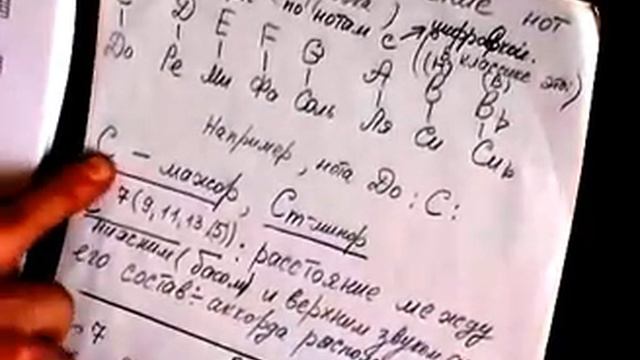 нот
по нотам с цифровкой.
(в классике это:)
C D E F G A B B♭
До Ре Ми Фа Соль Ля Си Си♭
(H) (B)
Например, нота До: C:
C - мажор, Cm-минор
C 7(9,11,13,/5)): расстояние между
нижним (басом) и верхним звуком
его состав÷ аккорда
7